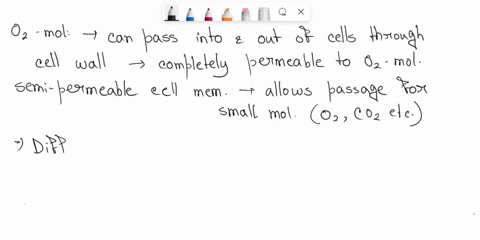 O₂-mol. → can pass into & out of cells through
cell wall → completely permeable to O₂-mol.
semi-permeable cell mem. → allows passage for
small mol. (O₂, CO₂ etc.)
→ Diff